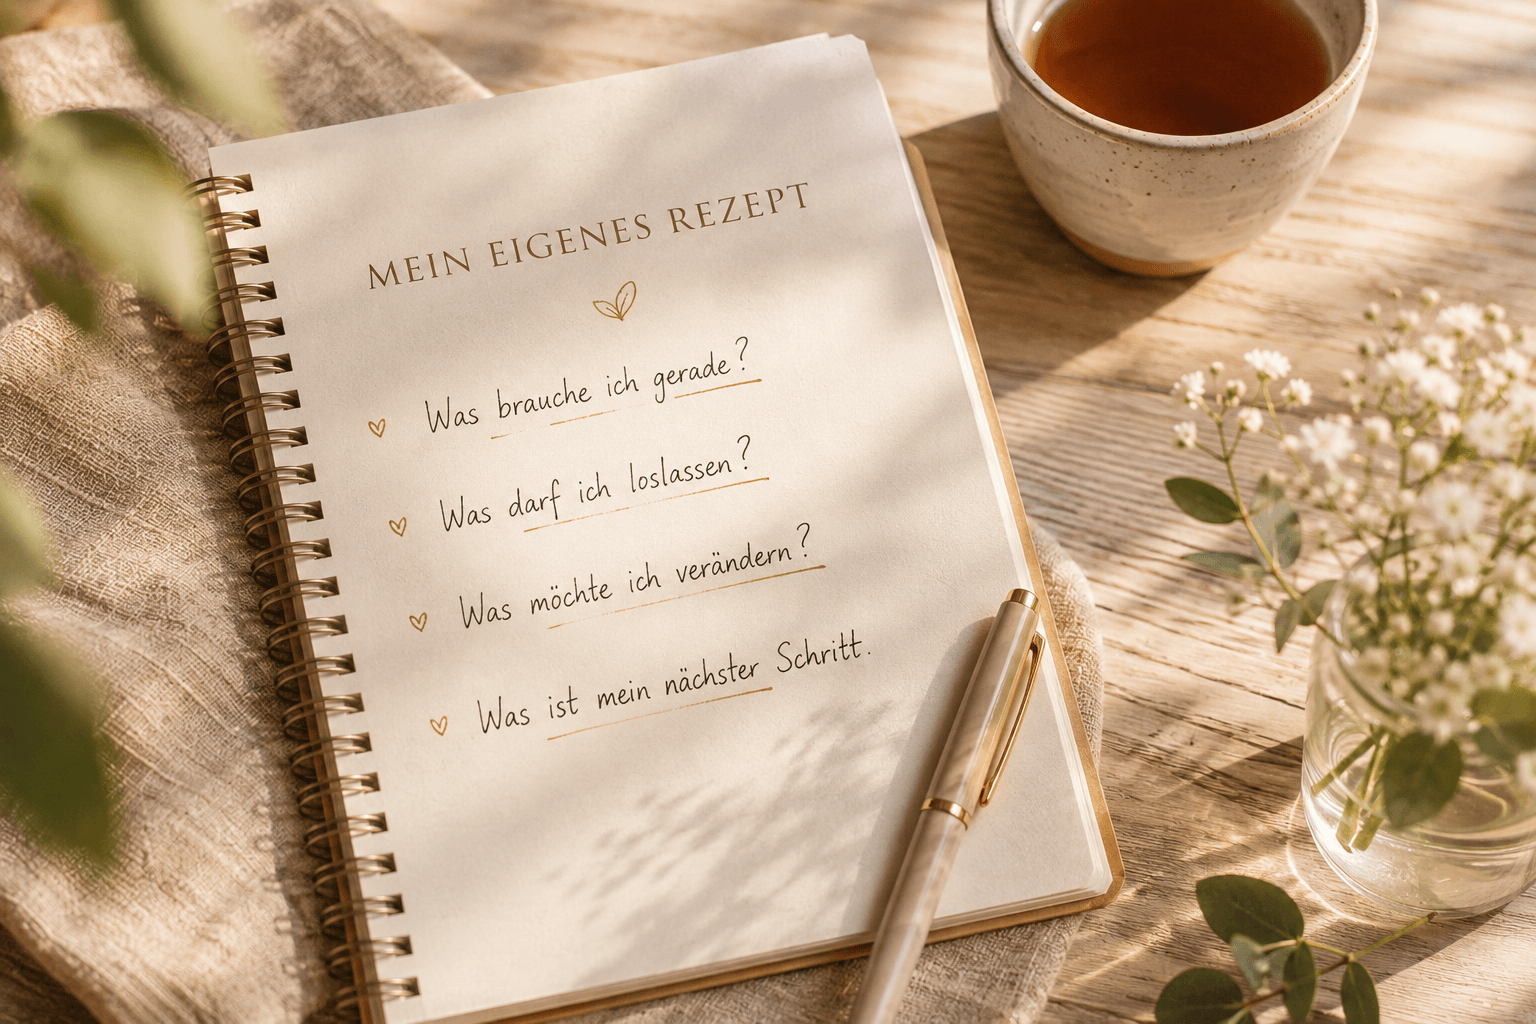 MEIN EIGENES REZEPT
Was brauche ich gerade?
Was darf ich loslassen?
Was möchte ich verändern?
Was ist mein nächster Schritt.